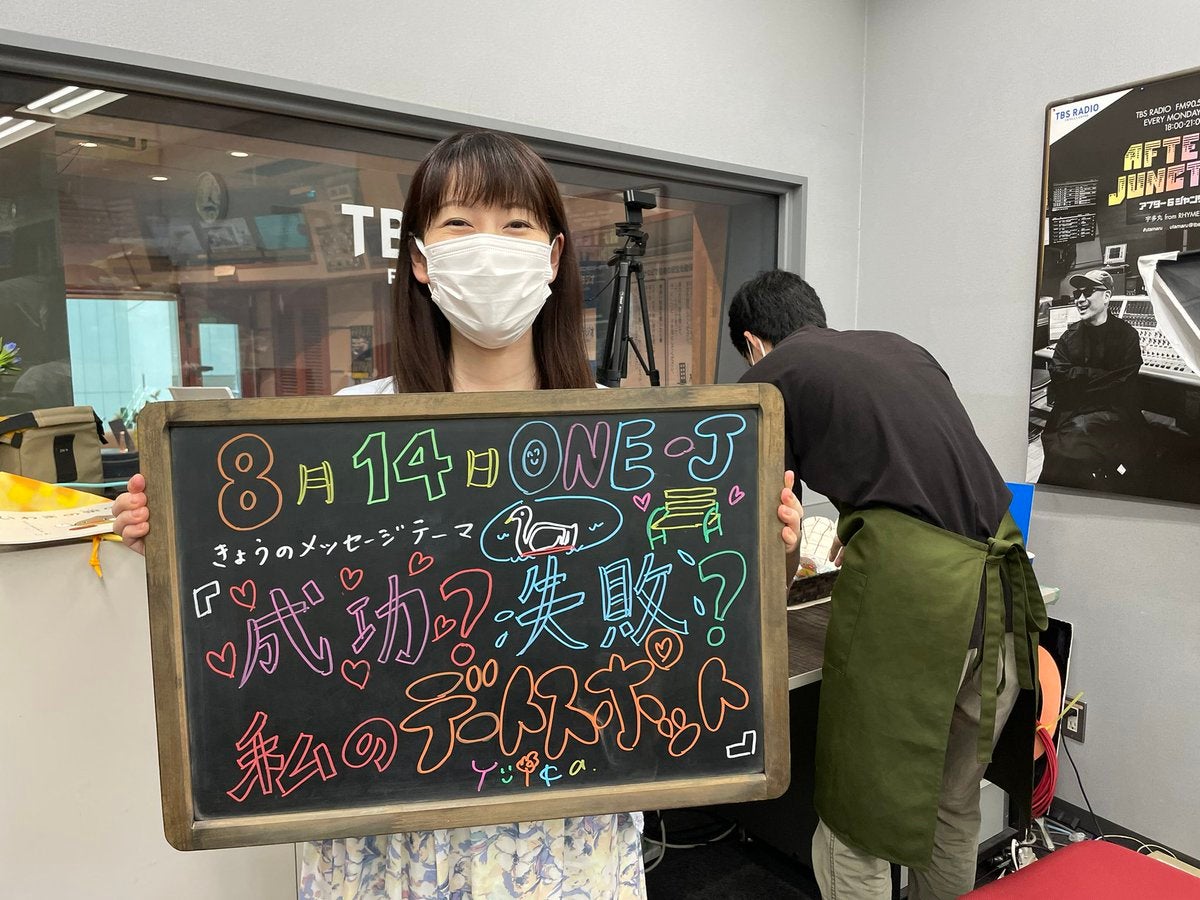 8月14日 ONE-J
きょうのメッセージテーマ
『成功？失敗？
私のデートスポット』
yuika.
TB
F
TBS RADIO
TBS RADIO FM90.5
EVERY MONDAY
18:00-21:0
AFTE
JUNCT
アフター6ジャンク
宇多丸 from RHYME